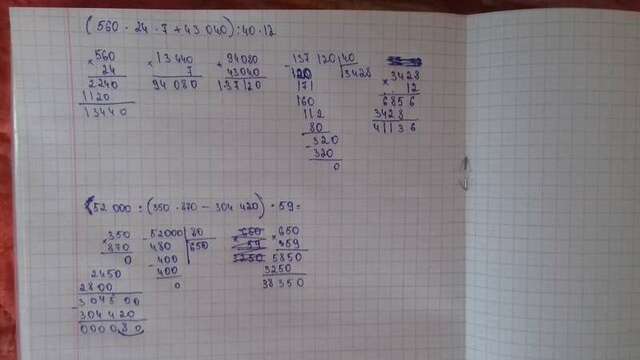 (560 · 24 · 7 + 43 040) : 40 · 12
× 560
24
2240
1120
13440
× 13440
7
94 080
+ 94080
43040
137120
- 137 120 | 40
120 | 3428
171
160
112
80
- 320
320
0
× 3428
12
6856
3428
41136
52 000 : (350 · 870 - 304 420) · 59 =
× 350
870
0
2450
2800
- 304500
304420
000080
- 52000 | 80
480 | 650
- 400
400
0
650
59
3250
× 650
59
5850
3250
38350